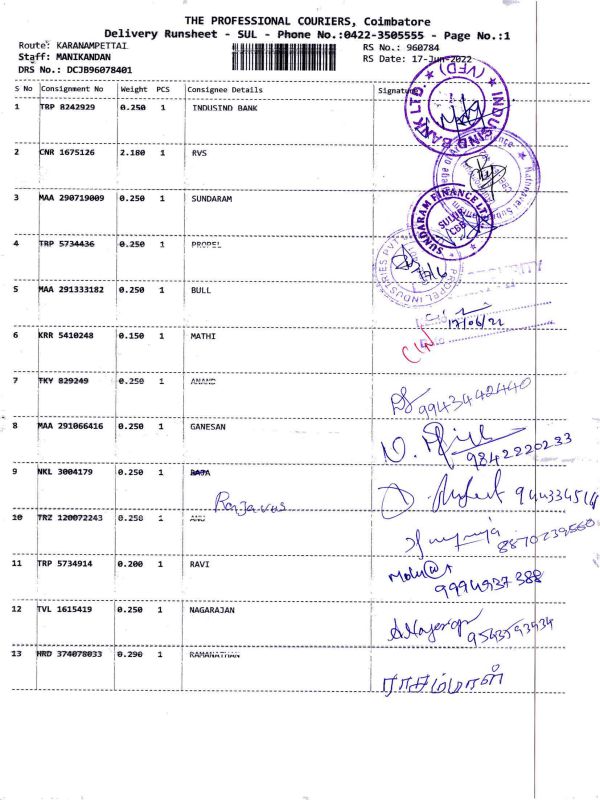 THE PROFESSIONAL COURIERS, Coimbatore
Delivery Runsheet - SUL - Phone No.:0422-3505555 - Page No.:1
Route: KARANAMPETTAI
RS No.: 960784
Staff: MANIKANDAN
RS Date: 17-Jun-2022
DRS No.: DCJB96078401
S No Consignment No Weight PCS Consignee Details Signature
1 TRP 8242929 0.250 1 INDUSIND BANK
INDUSIND BANK LTD. ★ (VFD) ★
2 CNR 1675126 2.180 1 RVS
3 MAA 290719009 0.250 1 SUNDARAM
SUNDARAM FINANCE LTD.
SULUR
4 TRP 5734436 0.250 1 PROPEL
PROPEL INDUSTRIES PVT
17/6
5 MAA 291333182 0.250 1 BULL
17/06/22
6 KRR 5410248 0.150 1 MATHI
7 TKY 829249 0.250 1 ANAND
9943442440
8 MAA 291066416 0.250 1 GANESAN
9842220233
9 NKL 3004179 0.250 1 RAJA
10 TRZ 120072243 0.250 1 ANU
11 TRP 5734914 0.200 1 RAVI
9994937388
12 TVL 1615419 0.250 1 NAGARAJAN
13 HRD 374078033 0.290 1 RAMANATHAN